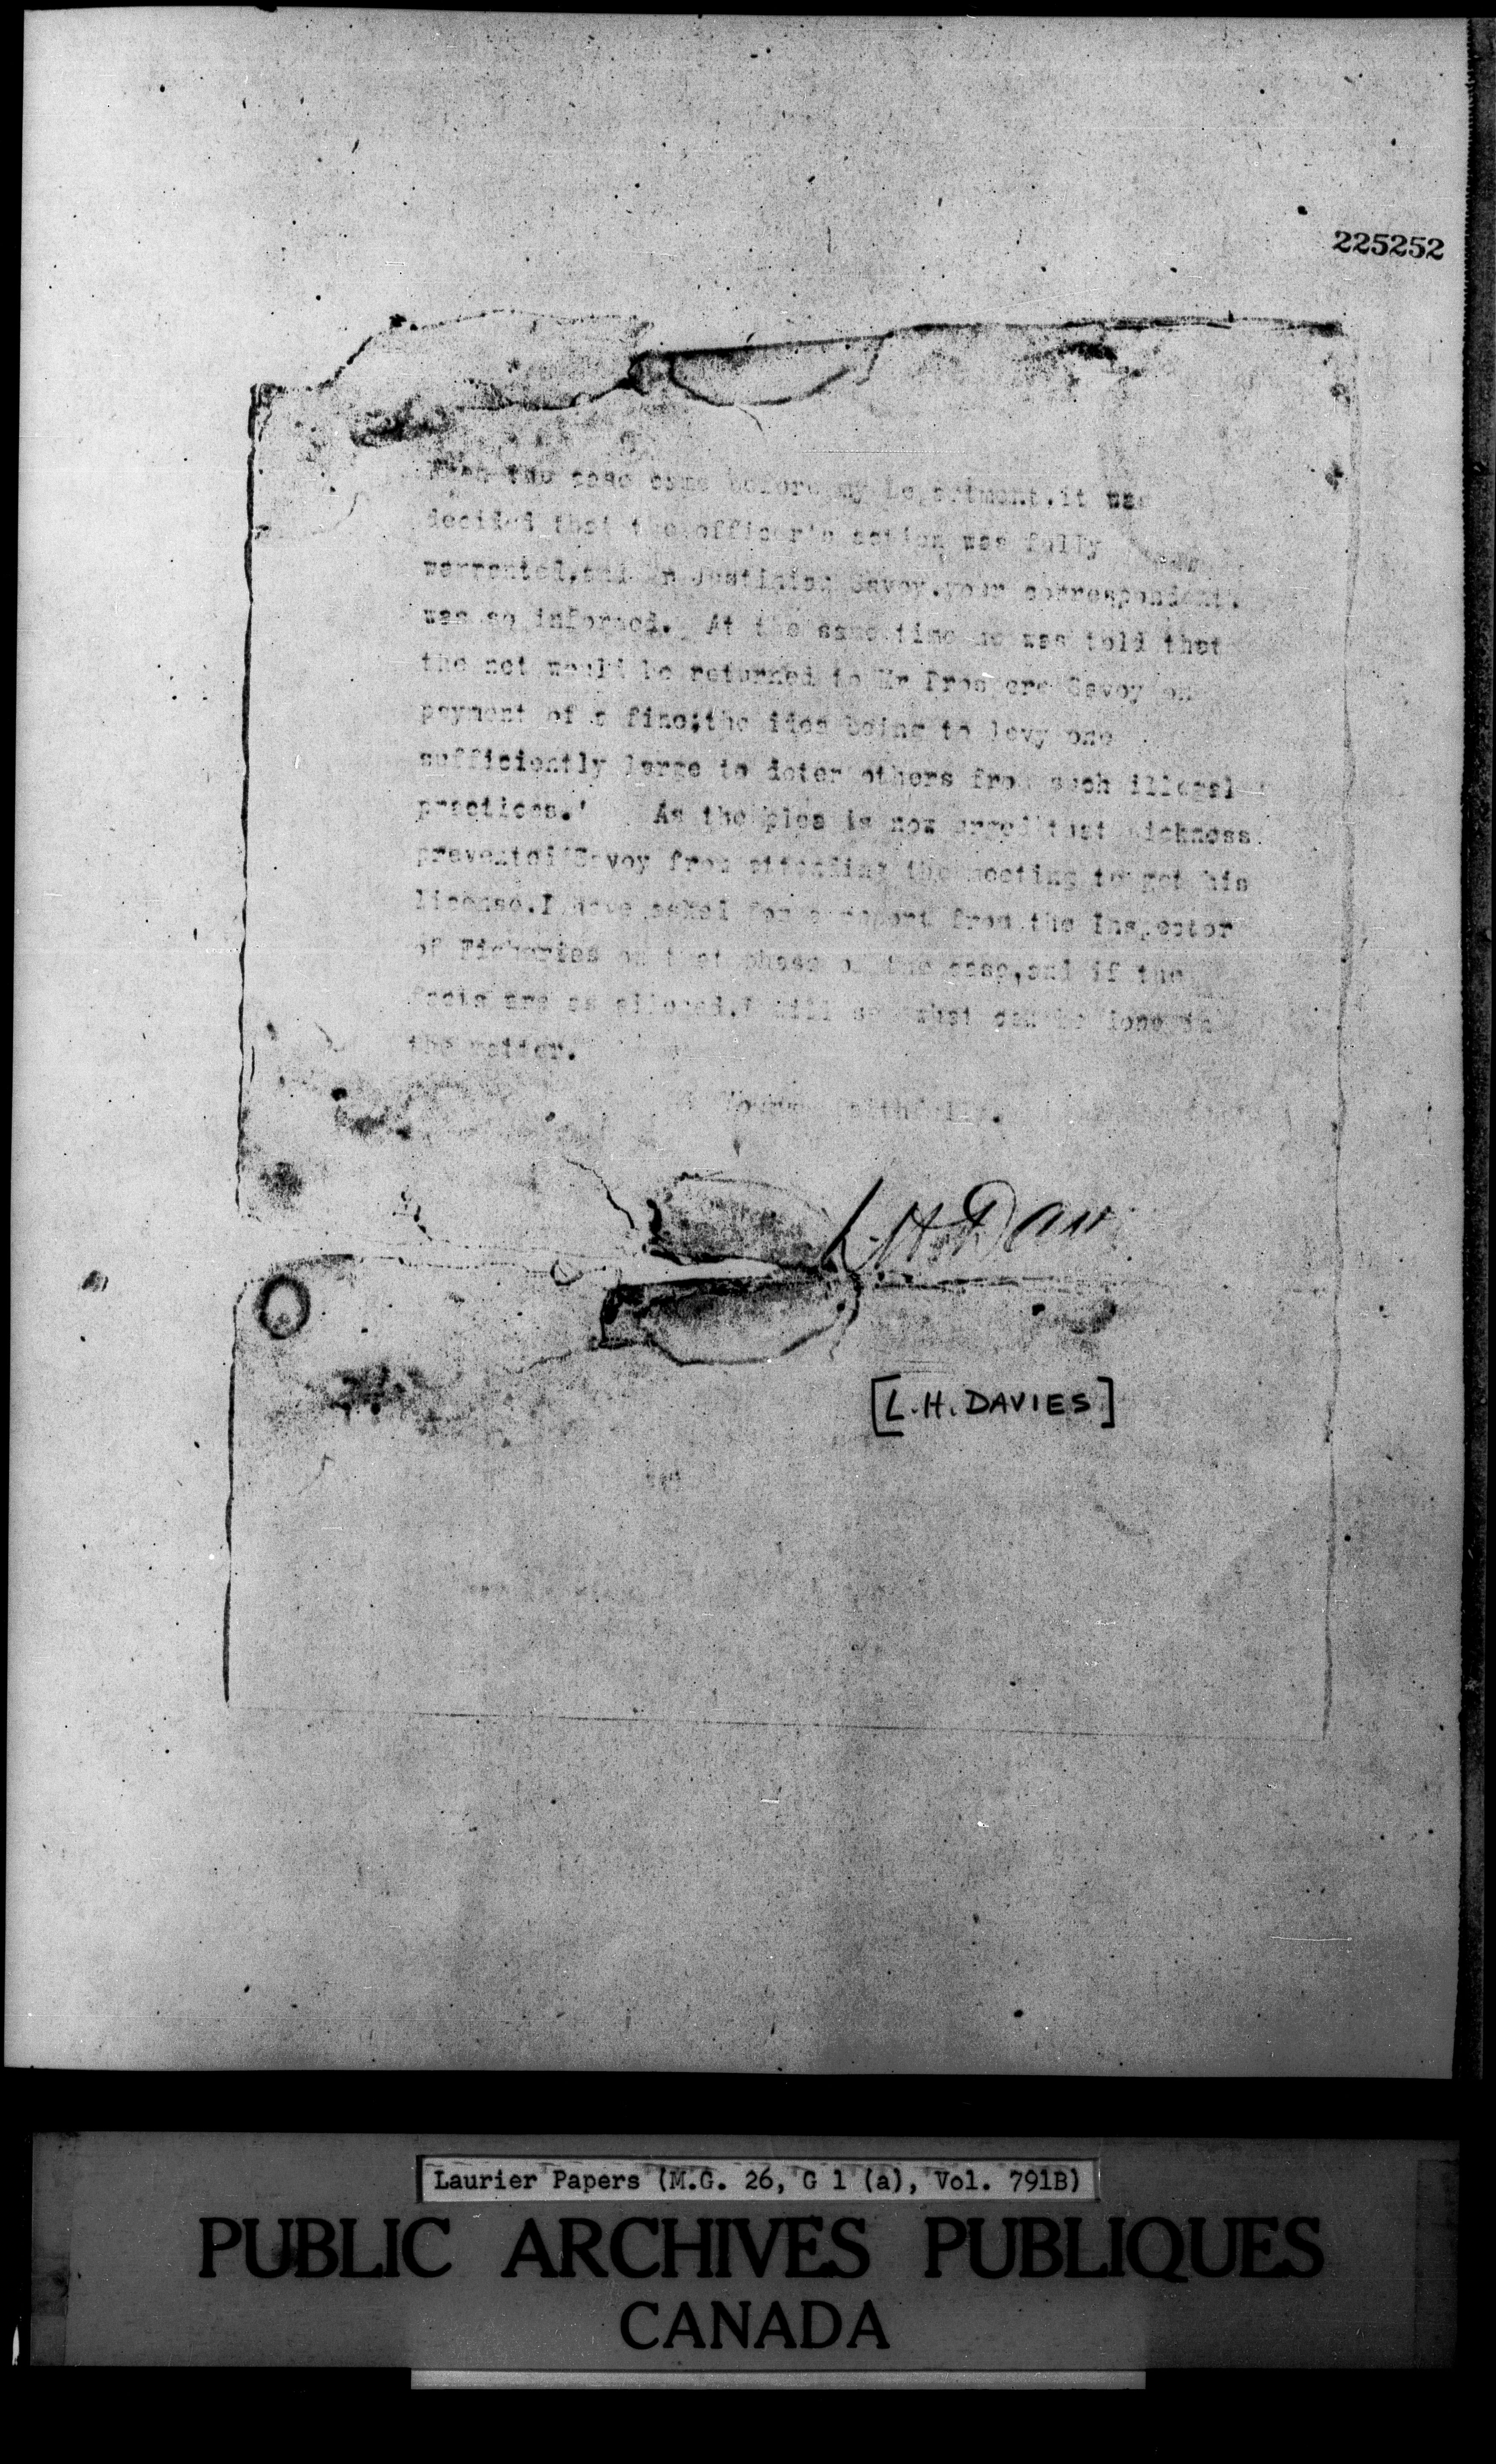 225252
When the case came before my Department, it was
decided that the officer's action was fully
warranted, and Justinien Savoy, your correspondent,
was so informed. At the same time he was told that
the net would be returned to Mr Prospere Savoy on
payment of a fine; the idea being to levy one
sufficiently large to deter others from such illegal
practices.' As the plea is now urged that sickness
prevented Savoy from attending the meeting to get his
license, I have asked for a report from the Inspector
of Fisheries on that phase of the case, and if the
facts are as alleged, I will see what can be done in
the matter.
Yours faithfully,
L. H. Davies
[L.H. DAVIES]
Laurier Papers (M.G. 26, G 1 (a), Vol. 791B)
PUBLIC ARCHIVES PUBLIQUES
CANADA